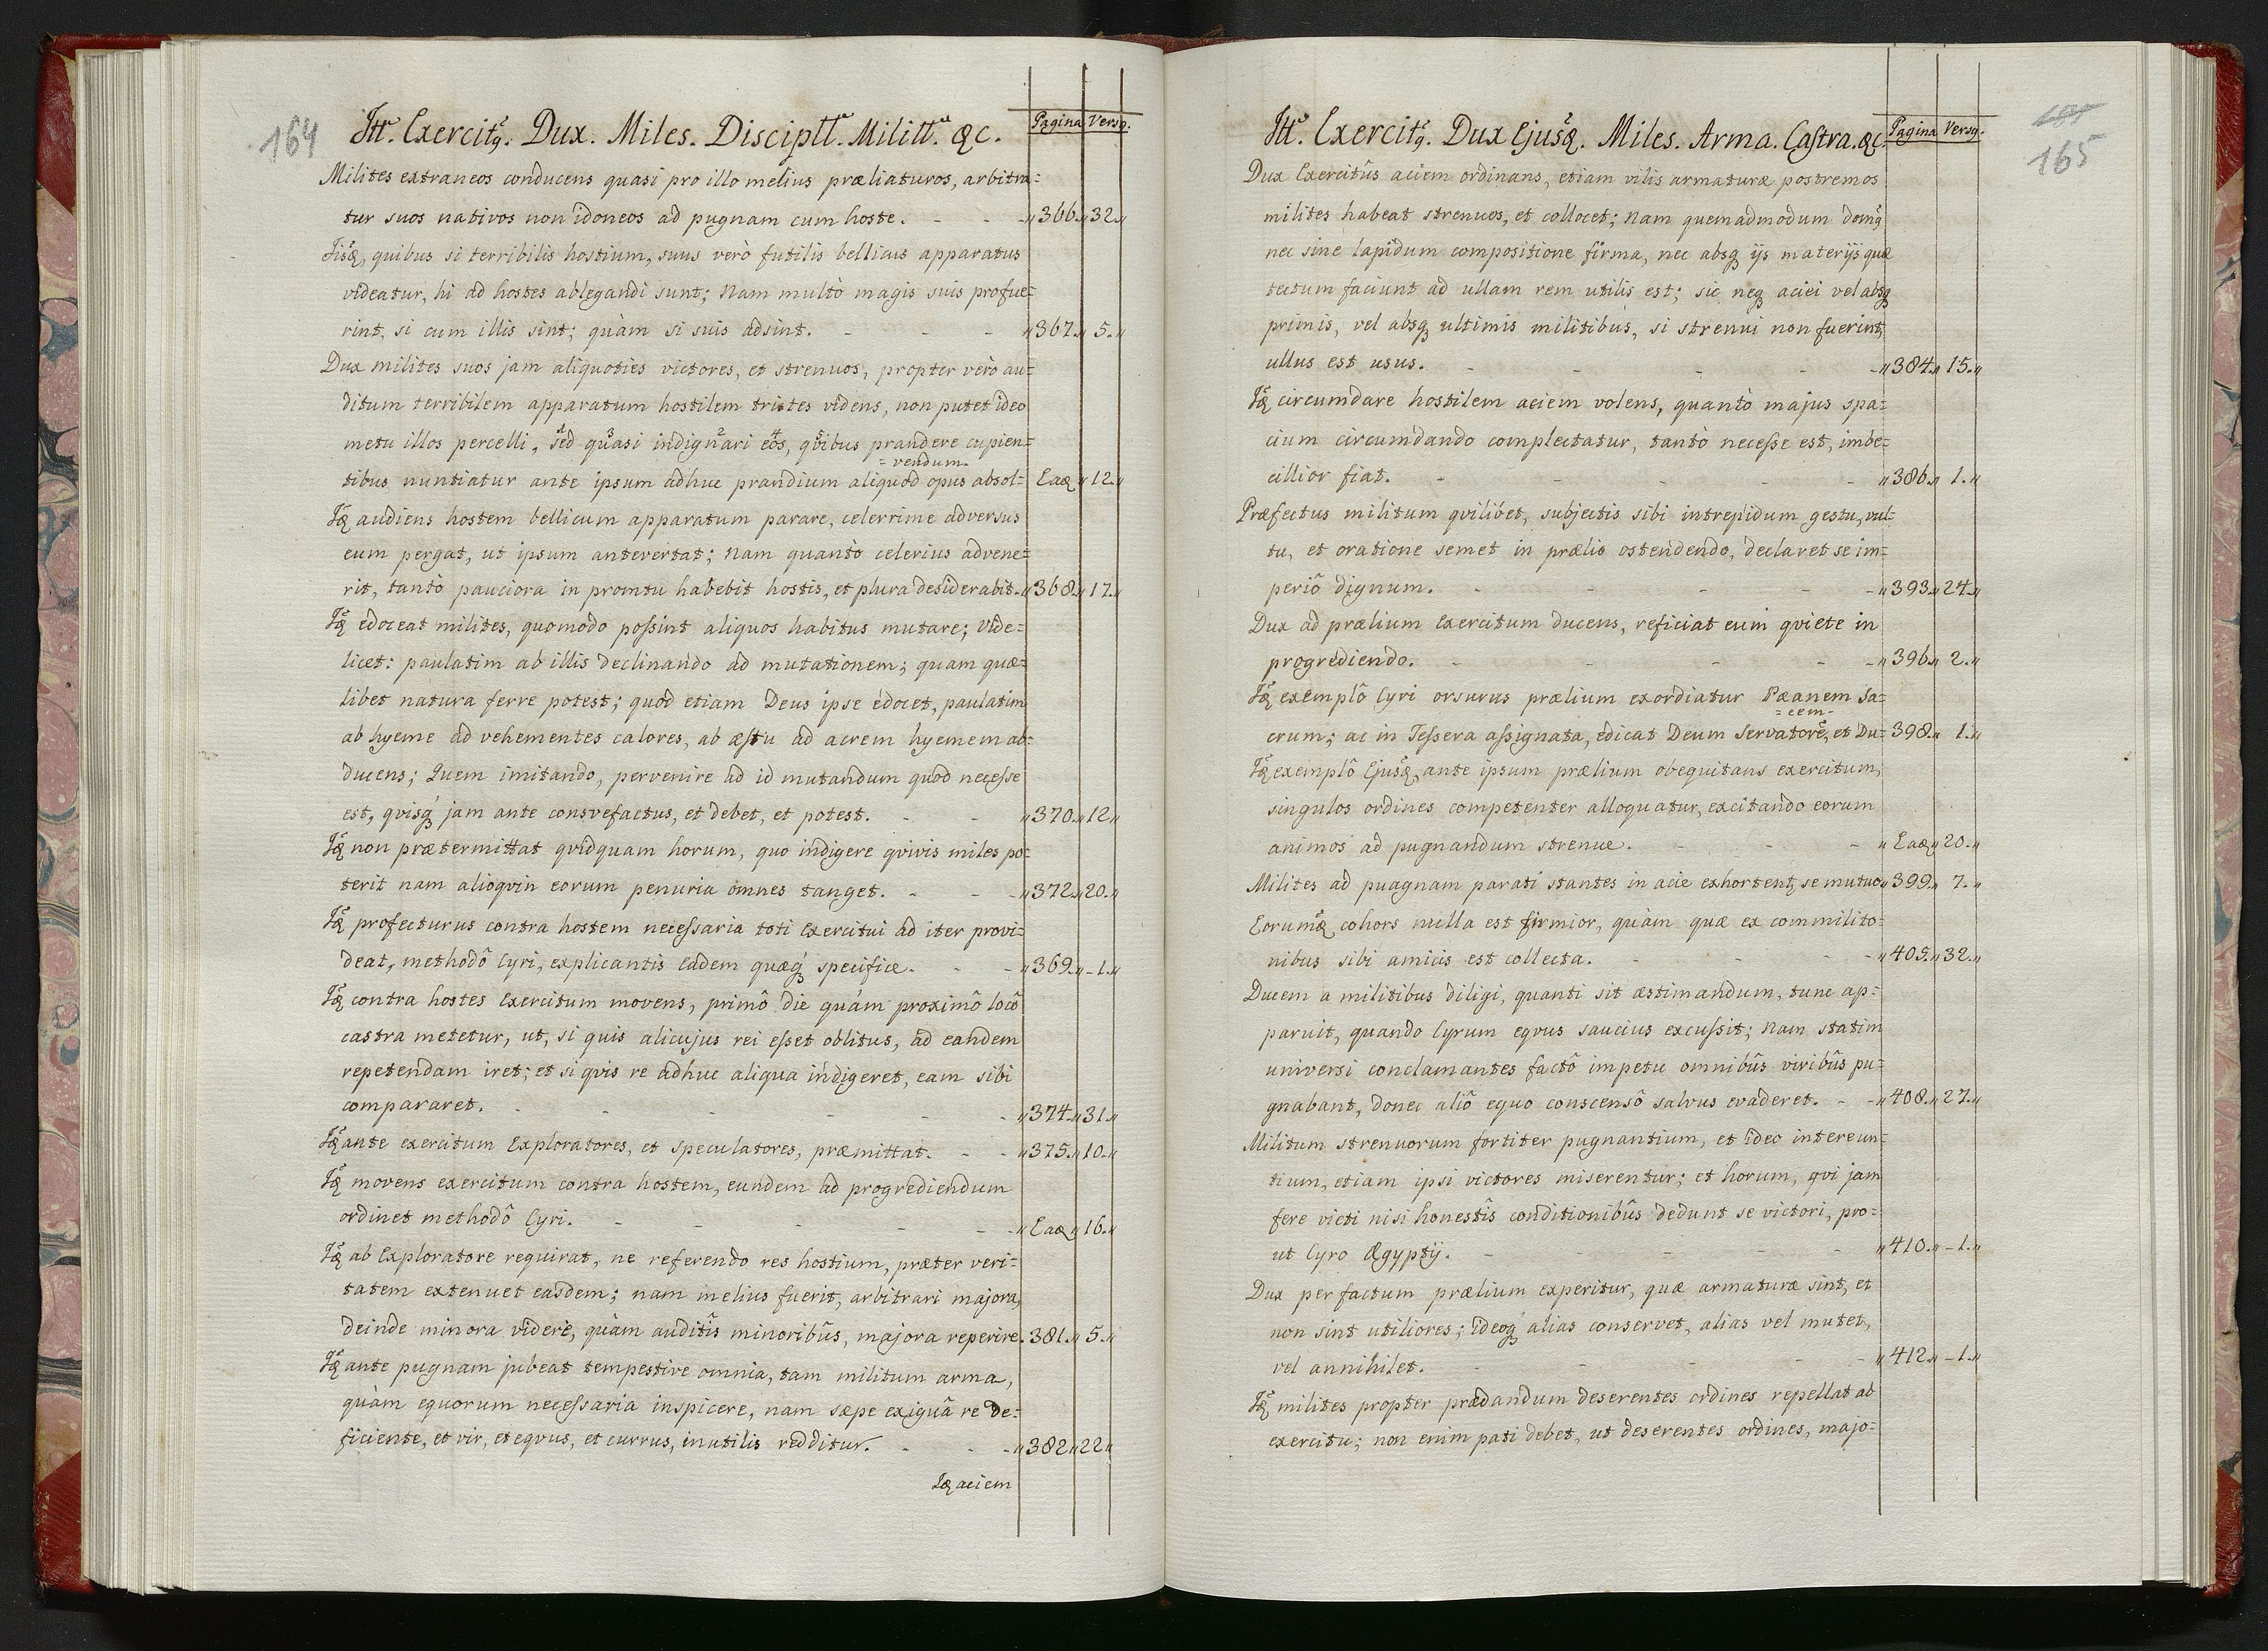 164
Itt. Exercitq. Dux. Miles. Disciptt. Militt. &c.
Pagina Versq.
Milites extraneos conducens quasi pro illo melius præliaturos, arbitra=
tur suos nativos non idoneos ad pugnam cum hoste. - - - „366.„ 32.„
Iisq, quibus si terribilis hostium, suus verò futilis bellicus apparatus
videatur, hi ad hostes ablegandi sunt; Nam multò magis suis profue=
rint, si cum illis sint; quàm si suis adsint. - - - „367.„ 5.„
Dux milites suos jam aliquoties victores, et strenuos, propter verò au=
ditum terribilem apparatum hostilem tristes videns, non putet ideo
metu illos percelli, sed quasi indignari eos, qvibus prandere cupien=
= vendum.
tibus nuntiatur ante ipsum adhuc prandium aliquod opus absol= Eaq „ 12.„
Iq audiens hostem bellicum apparatum parare, celerrime adversus
eum pergat, ut ipsum antevertat; Nam quantò celerius advene=
rit, tantò pauciora in promtu habebit hostis, et plura desiderabit. „368.„ 17.„
Iq edoceat milites, quomodo possint aliquos habitus mutare; vide=
licet: paulatim ab illis declinando ad mutationem; quam quæ=
libet natura ferre potest; quod etiam Deus ipse edocet, paulatim
ab hyeme ad vehementes calores, ab æstu ad acrem hyemem ab=
ducens; Quem imitando, pervenire ad id mutandum quod necesse
est, qvisq jam ante consvefactus, et debet, et potest. - - „370.„ 12„
Iq non prætermittat qvidquam horum, quo indigere qvivis miles po=
terit nam alioqvin eorum penuria omnes tanget. - - - „372.„ 20.„
Iq profecturus contra hostem necessaria toti Exercitui ad iter provi=
deat, methodô Cyri, explicantis Eadem quæq specifice. - - „369.„ - 1.„
Iq contra hostes Exercitum movens, primô die quàm proximô locô
castra metetur, ut, si quis alicujus rei esset oblitus, ad eandem
repetendam iret; et si qvis re adhuc aliqua indigeret, eam sibi
compararet. - - - - - - „374.„ 31.„
Iq ante exercitum Exploratores, et speculatores, præmittat. - - „375.„ 10.„
Iq movens exercitum contra hostem, eundem ad progrediendum
ordinet methodô Cyri. - - - - - „ Eaq „ 16.„
Iq ab Exploratore requirat, ne referendo res hostium, præter veri=
tatem extenuet easdem; nam melius fuerit, arbitrari majora,
deinde minora videre, quàm auditîs minoribûs, majora reperire. 381.„ 5.„
Iq ante pugnam jubeat tempestive omnia, tam militum arma,
quàm equorum necessaria inspicere, nam sæpe exiguâ re de=
ficiente, et vir, et eqvus, et currus, inutilis redditur. - - - „382„ 22„
Iq aciem
165
Itt. Exercitq. Dux Ejusq. Miles. Arma. Castra. &c.
Pagina Versq.
Dux Exercitûs aciem ordinans, etiam vilis armaturæ postremos
milites habeat strenuos, et collocet; Nam quemadmodum domq
nec sine lapidum compositione firma, nec absq ijs materijs quæ
tectum faciunt ad ullam rem utilis est; sic neq aciei vel absq
primis, vel absq ultimis militibus, si strenui non fuerint,
ullus est usus. - - - - - „384.„ 15.„
Iq circumdare hostilem aciem volens, quantò majus spa=
cium circumdando complectatur, tantò necesse est, imbe=
cillior fiat. - - - - - „386.„ 1.„
Præfectus militum qvilibet, subjectis sibi intrepidum gestu, vul=
tu, et oratione semet in prælio ostendendo, declaret se im=
periô dignum. - - - - - „393.„ 24.„
Dux ad prælium Exercitum ducens, reficiat eum qviete in
progrediendo. - - - - - „396.„ 2.„
Iq exemplô Cyri orsurus prælium exordiatur Pæanem Sa=
= cem -
crum; ac in Tessera assignata, edicat Deum Servatorē, et Du= 398.„ 1.„
Iq exemplô Ejusq, ante ipsum prælium obequitans exercitum,
singulos ordines competenter alloquatur, excitando eorum
animos ad pugnandum strenue. - - - „ Eaq „ 20.„
Milites ad puagnam parati stantes in acie exhortent se mutuo „399.„ 7.„
Eorumq cohors nulla est firmior, quàm quæ ex commilito=
nibus sibi amicis est collecta. - - - - „405.„ 32.„
Ducem a militibus diligi, quanti sit æstimandum, tunc ap=
paruit, quando Cyrum eqvus saucius excussit; Nam statim
universi conclamantes factô impetu omnibûs viribûs pu=
gnabant, donec aliô equo conscensô salvus evaderet. - - „408.„ 27.„
Militum strenuorum fortiter pugnantium, et ideo intereun=
tium, etiam ipsi victores miserentur; et horum, qvi jam
fere victi nisi honestîs conditionibûs dedunt se victori, pro=
ut Cyro Ægyptij. - - - - - „410.„ - 1.„
Dux per factum prælium experitur, quæ armaturæ sint, et
non sint utiliores; ideoq alias conservet, alias vel mutet,
vel annihilet. - - - - - „412.„ - 1.„
Iq milites propter prædandum deserentes ordines repellat ab
exercitu; non enim pati debet, ut deserentes ordines, majo=